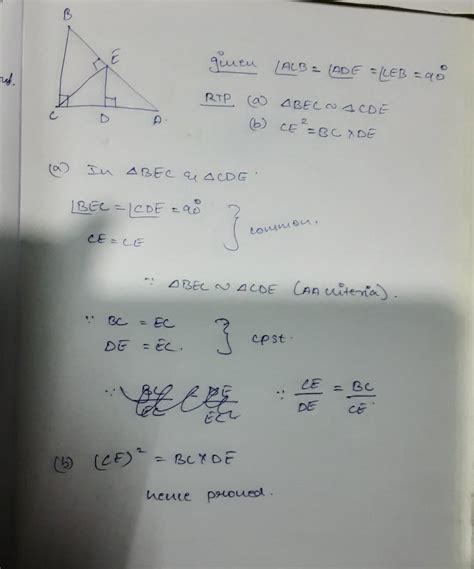 B
E
C D A
given ∠ACB = ∠ADE = ∠CEB = 90°
RTP (a) △BEC ~ △CDE
(b) CE² = BC × DE
(a) In △BEC & △CDE
∠BEC = ∠CDE = 90°
CE = CE } common.
∵ △BEC ~ △CDE (AA criteria).
∵ BC = EC
DE = EC. } cpst.
∵ CE/DE = BC/CE
(b) (CE)² = BC × DE
hence proved.